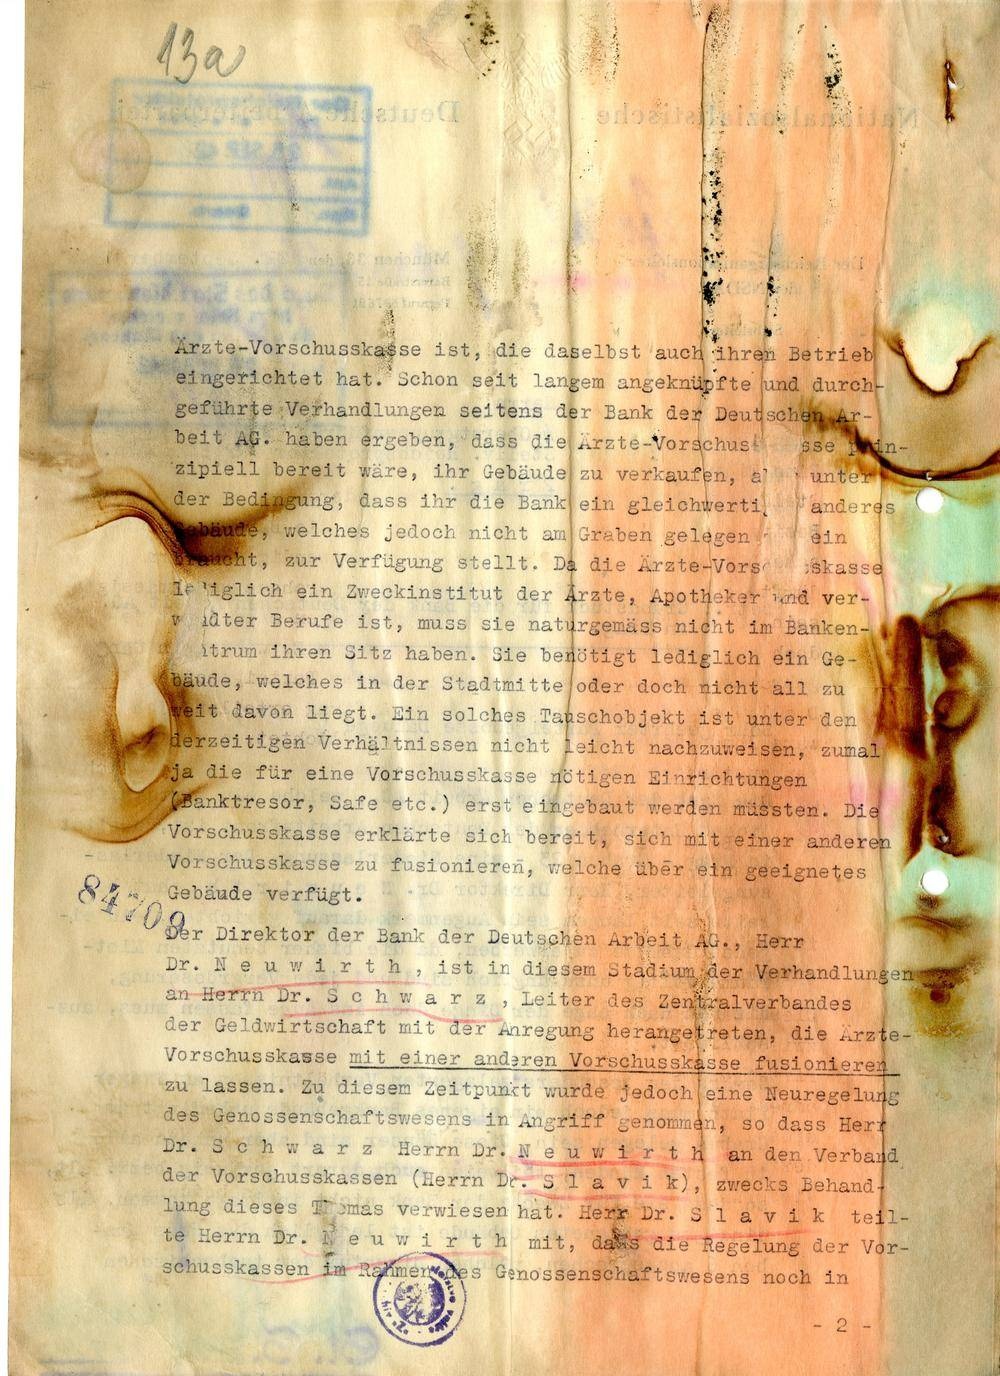 13a
Ärzte-Vorschusskasse ist, die daselbst auch ihren Betrieb
eingerichtet hat. Schon seit langem angeknüpfte und durch-
geführte Verhandlungen seitens der Bank der Deutschen Ar-
beit AG. haben ergeben, dass die Ärzte-Vorschus sse prin-
zipiell bereit wäre, ihr Gebäude zu verkaufen, a unter
der Bedingung, dass ihr die Bank ein gleichwerti anderes
Gebäude, welches jedoch nicht am Graben gelegen ein
braucht, zur Verfügung stellt. Da die Ärzte-Vors skasse
lediglich ein Zweckinstitut der Ärzte, Apotheker und ver-
w dter Berufe ist, muss sie naturgemäss nicht im Banken-
trum ihren Sitz haben. Sie benötigt lediglich ein Ge-
bäude, welches in der Stadtmitte oder doch nicht all zu
weit davon liegt. Ein solches Tauschobjekt ist unter den
derzeitigen Verhältnissen nicht leicht nachzuweisen, zumal
ja die für eine Vorschusskasse nötigen Einrichtungen
(Banktresor, Safe etc.) erst eingebaut werden müssten. Die
Vorschusskasse erklärte sich bereit, sich mit einer anderen
Vorschusskasse zu fusionieren, welche über ein geeignetes
Gebäude verfügt.
84709
Der Direktor der Bank der Deutschen Arbeit AG., Herr
Dr. N e u w i r t h , ist in diesem Stadium der Verhandlungen
an Herrn Dr. S c h w a r z , Leiter des Zentralverbandes
der Geldwirtschaft mit der Anregung herangetreten, die Ärzte-
Vorschusskasse mit einer anderen Vorschusskasse fusionieren
zu lassen. Zu diesem Zeitpunkt wurde jedoch eine Neuregelung
des Genossenschaftswesens in Angriff genommen, so dass Herr
Dr. S c h w a r z Herrn Dr. N e u w i r t h an den Verband
der Vorschusskassen (Herrn Dr. S l a v i k), zwecks Behand-
lung dieses Themas verwiesen hat. Herr Dr. S l a v i k teil-
te Herrn Dr. N e u w i r t h mit, dass die Regelung der Vor-
schusskassen im Rahmen des Genossenschaftswesens noch in
- 2 -